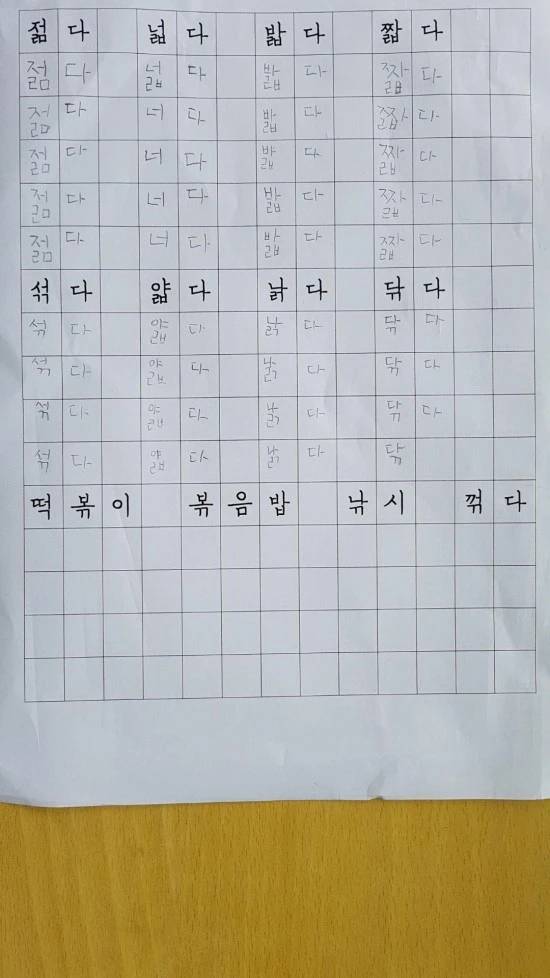 젊다 넓다 밟다 짧다
젊다 넓다 밟다 짧다
젊다 너다 밟다 짧다
젊다 너다 밟다 짧다
젊다 너다 밟다 짧다
젊다 너다 밟다 짧다
섞다 얇다 낡다 닦다
섞다 얇다 낡다 닦다
섞다 얇다 낡다 닦다
섞다 얇다 낡다 닦다
섞다 얇다 낡다 닦
떡볶이 볶음밥 낚시 꺾다